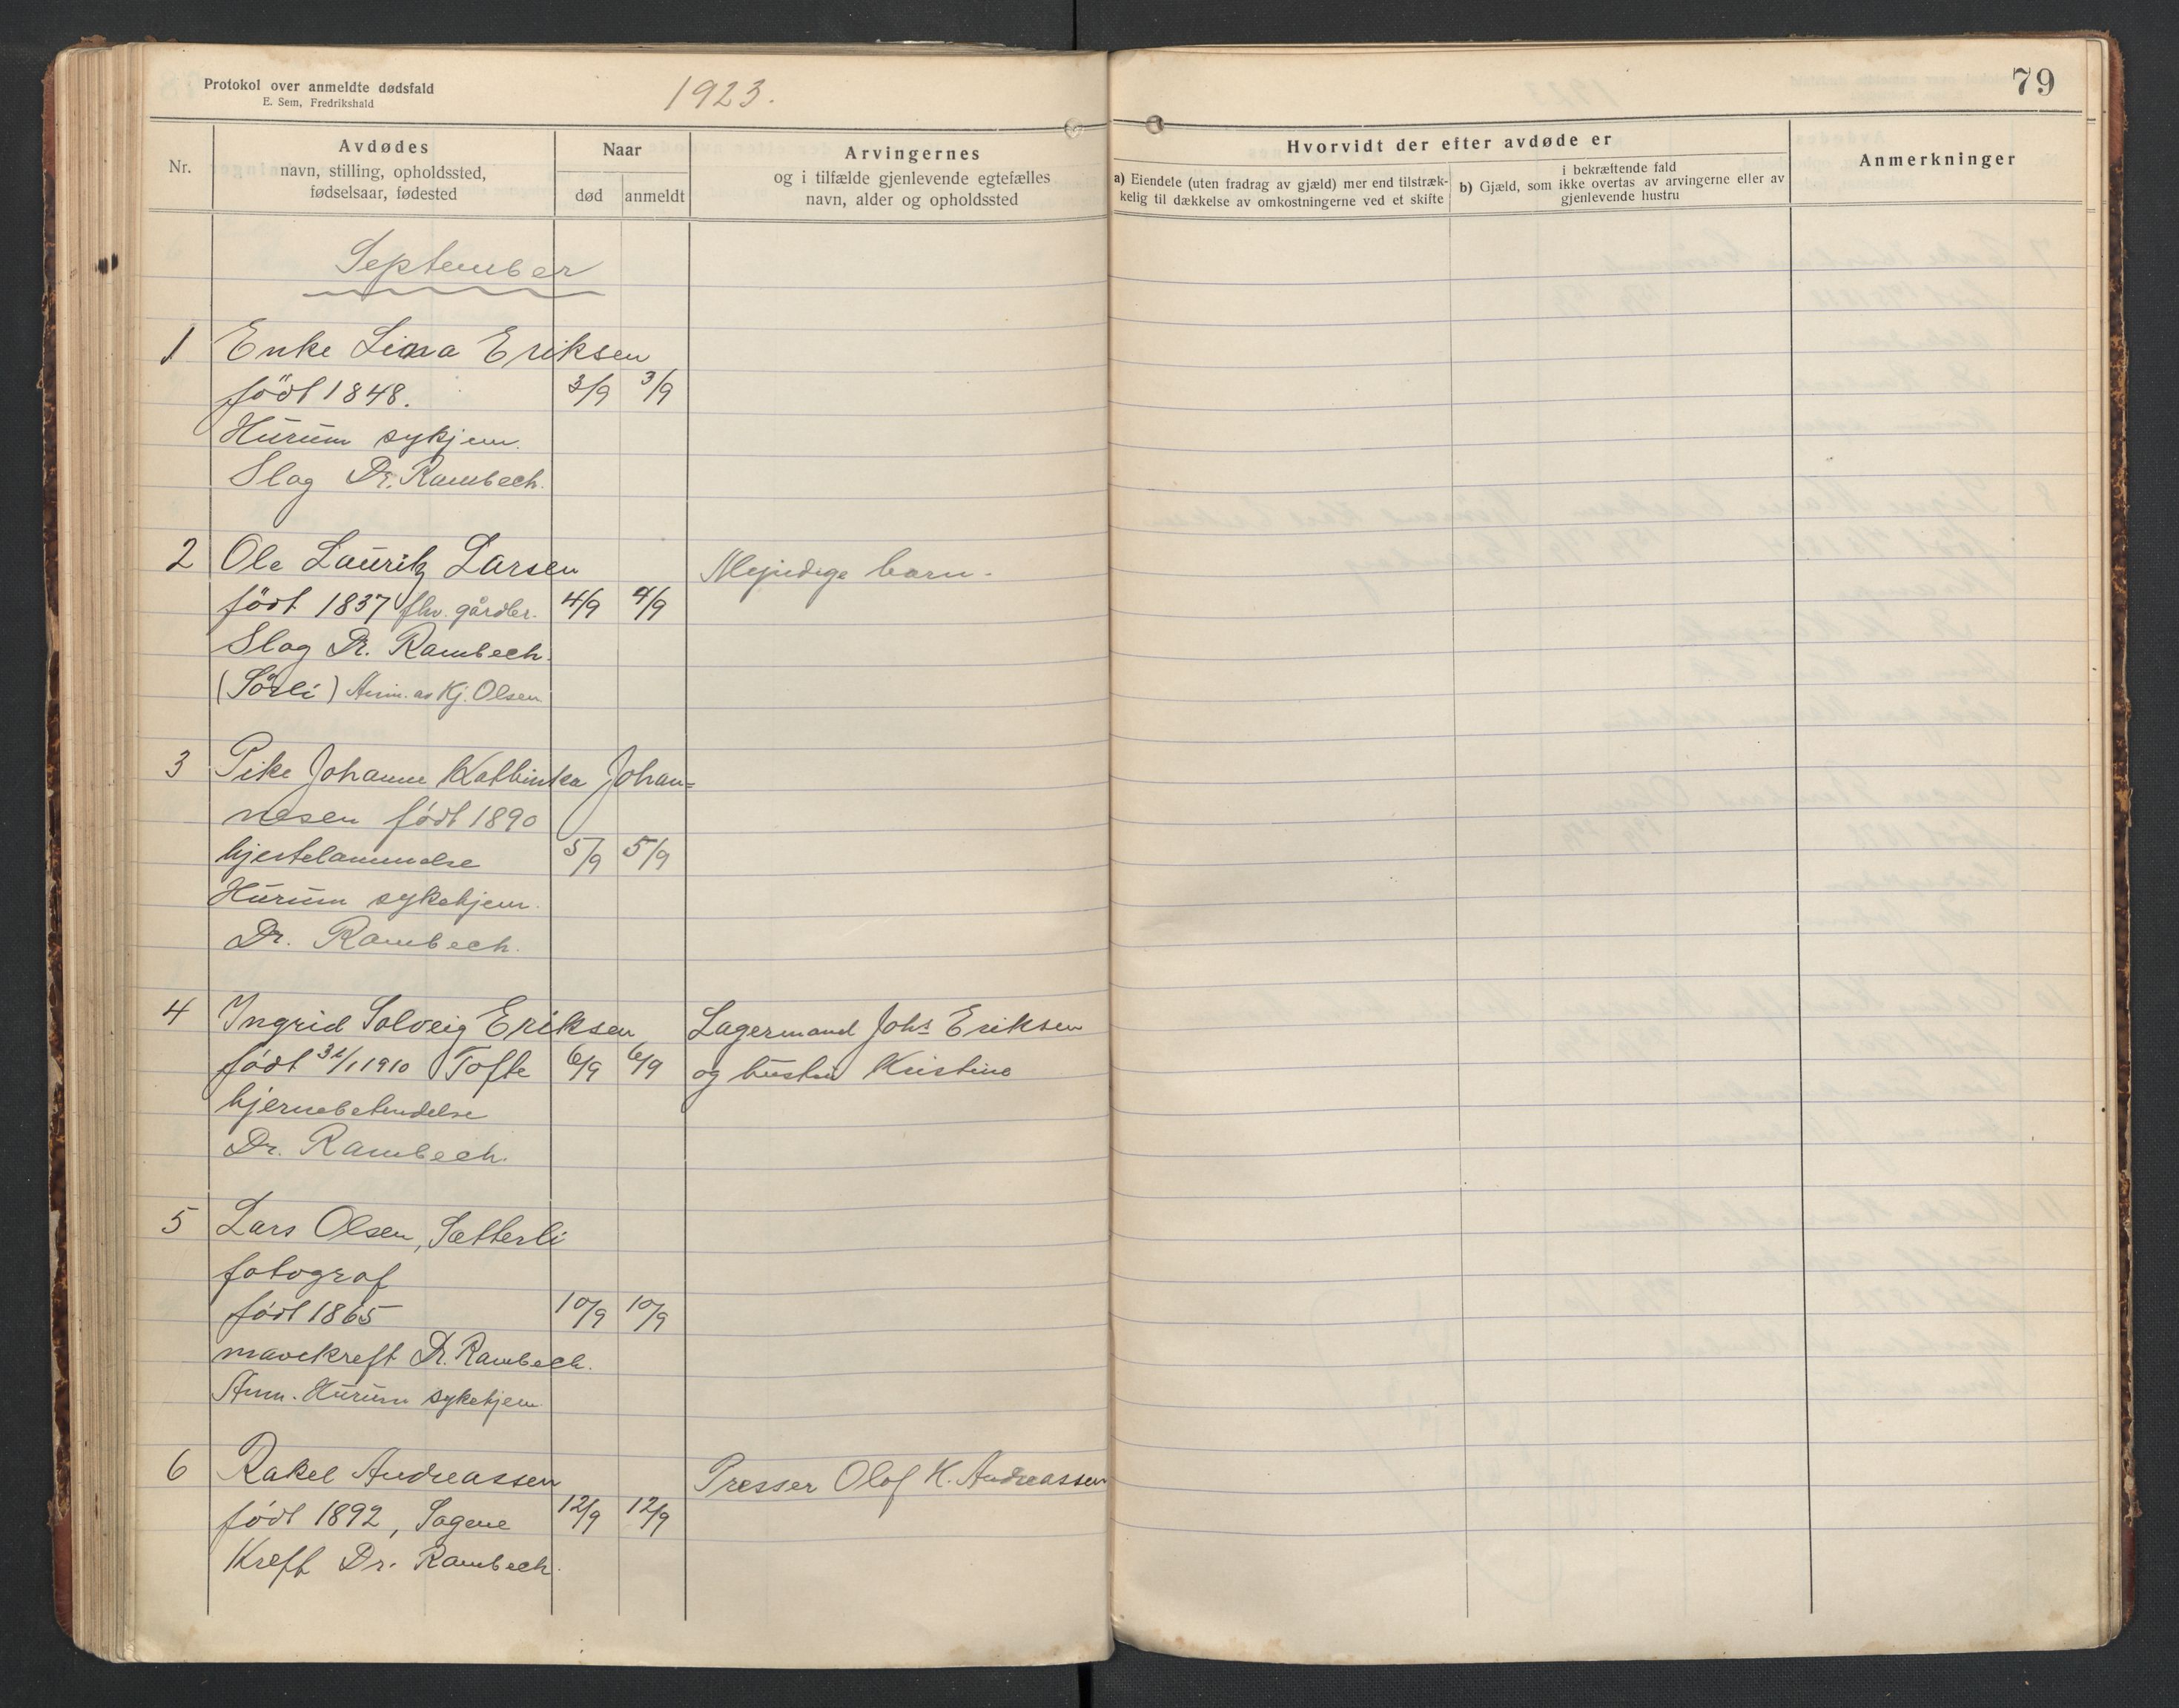 Protokol over anmeldte dødsfald
E. Sem, Fredrikshald
1923.
79
Nr.
Avdødes
navn, stilling, opholdssted,
fødselsaar, fødested
Naar
død
anmeldt
Arvingernes
og i tilfælde gjenlevende egtefælles
navn, alder og opholdssted
Hvorvidt der efter avdøde er
a) Eiendele (uten fradrag av gjæld) mer end tilstræk-
kelig til dækkelse av omkostningerne ved et skifte
i bekræftende fald
b) Gjæld, som ikke overtas av arvingerne eller av
gjenlevende hustru
Anmerkninger
September
1 Enke Lina Eriksen
født 1848. 3/9 3/9
Hurum sykjem.
Slag Dr. Rambech.
2 Ole Lauritz Larsen Myndige barn.
født 1837 fhv. gårdbr. 4/9 4/9
Slag Dr. Rambech.
(Sørli) Anm. av Kj. Olsen.
3 Pike Johanne Kathinka Johan=
nesen født 1890
hjertelammelse 5/9 5/9
Hurum sykehjem.
Dr. Rambech.
4 Ingrid Solveig Eriksen Lagermand Johs Eriksen
født 1910 Tofte 6/9 6/9 og hustru Kristine
hjernebetendelse
Dr. Rambech.
5 Lars Olsen, Sætterli
fotograf
født 1865 10/9 10/9
mavekreft Dr. Rambech.
Anm. Hurum sykehjem.
6 Rakel Andreassen Presser Olof K. Andreassen
født 1892, Sagene 12/9 12/9
Kreft Dr. Rambech.